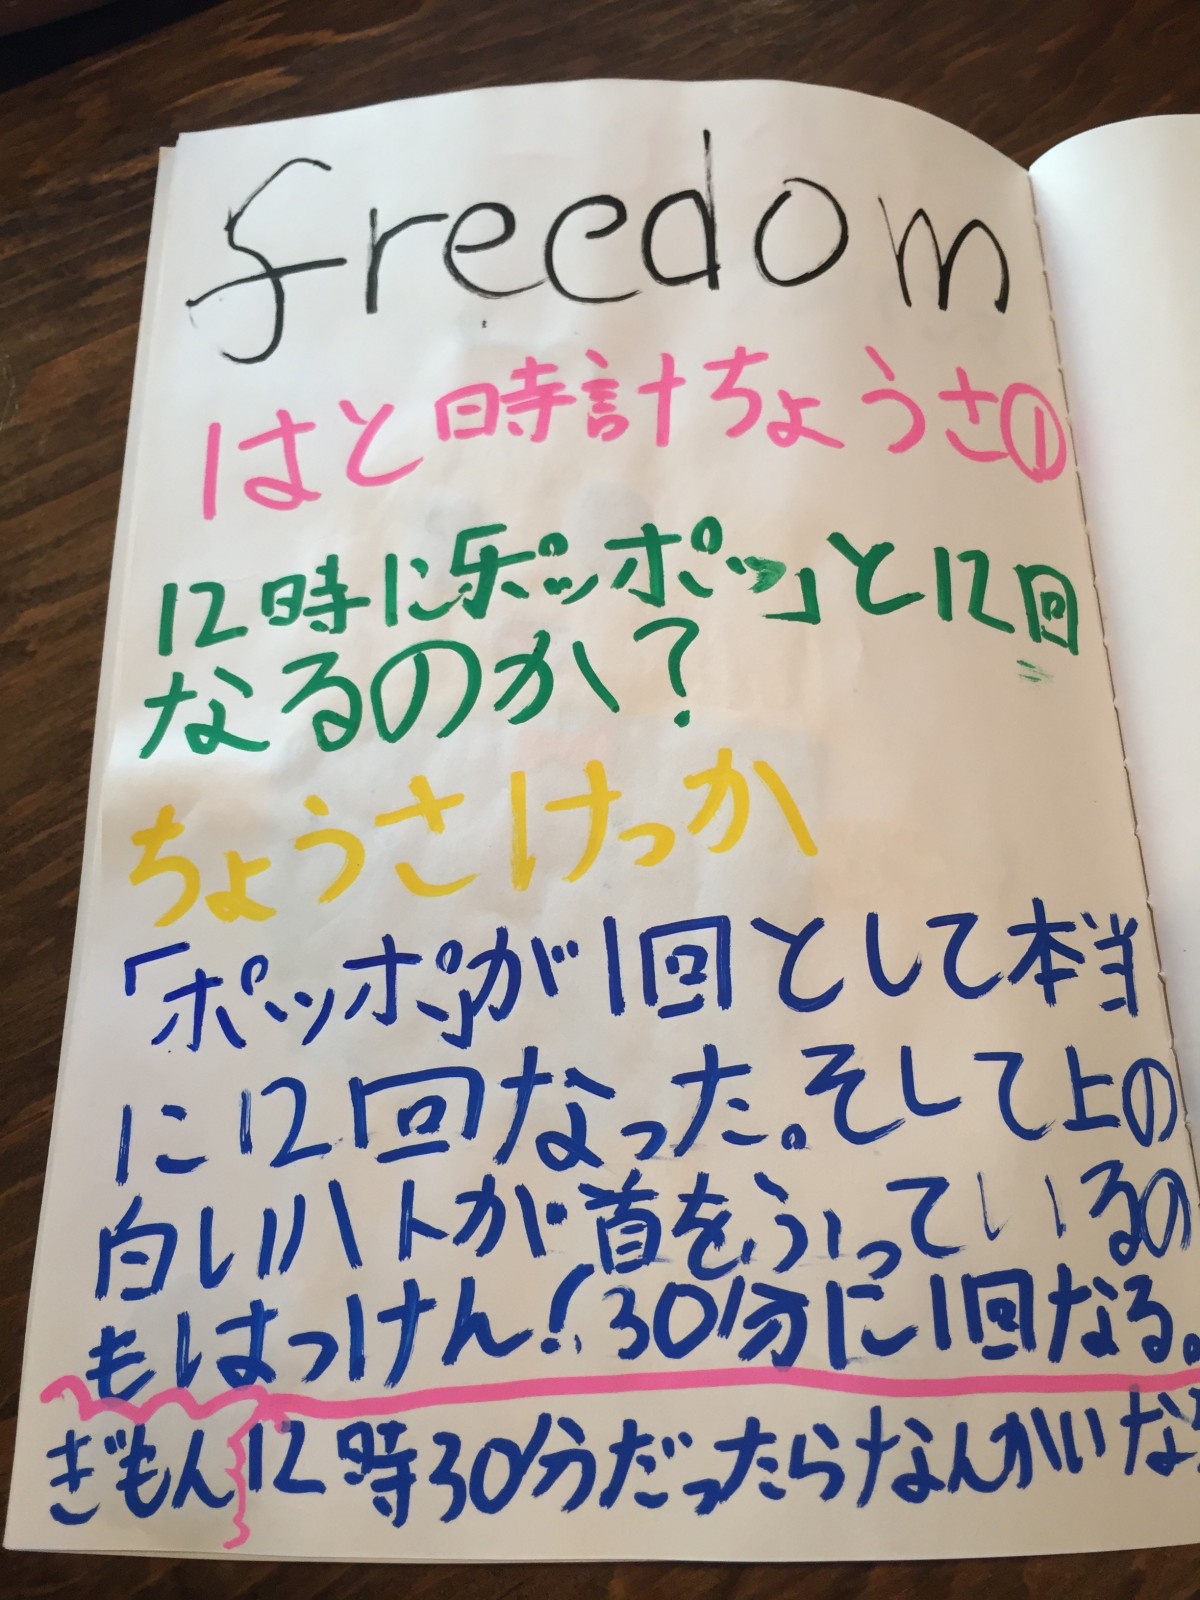 freedom
はと時計ちょうさ①
12時に「ポッポッ」と12回
なるのか?
ちょうさけっか
「ポッポ」が1回として本当
に12回なった。そして上の
白いハトが首をふっているの
もはっけん!30分に1回なる。
ぎもん 12時30分だったらなんかいな